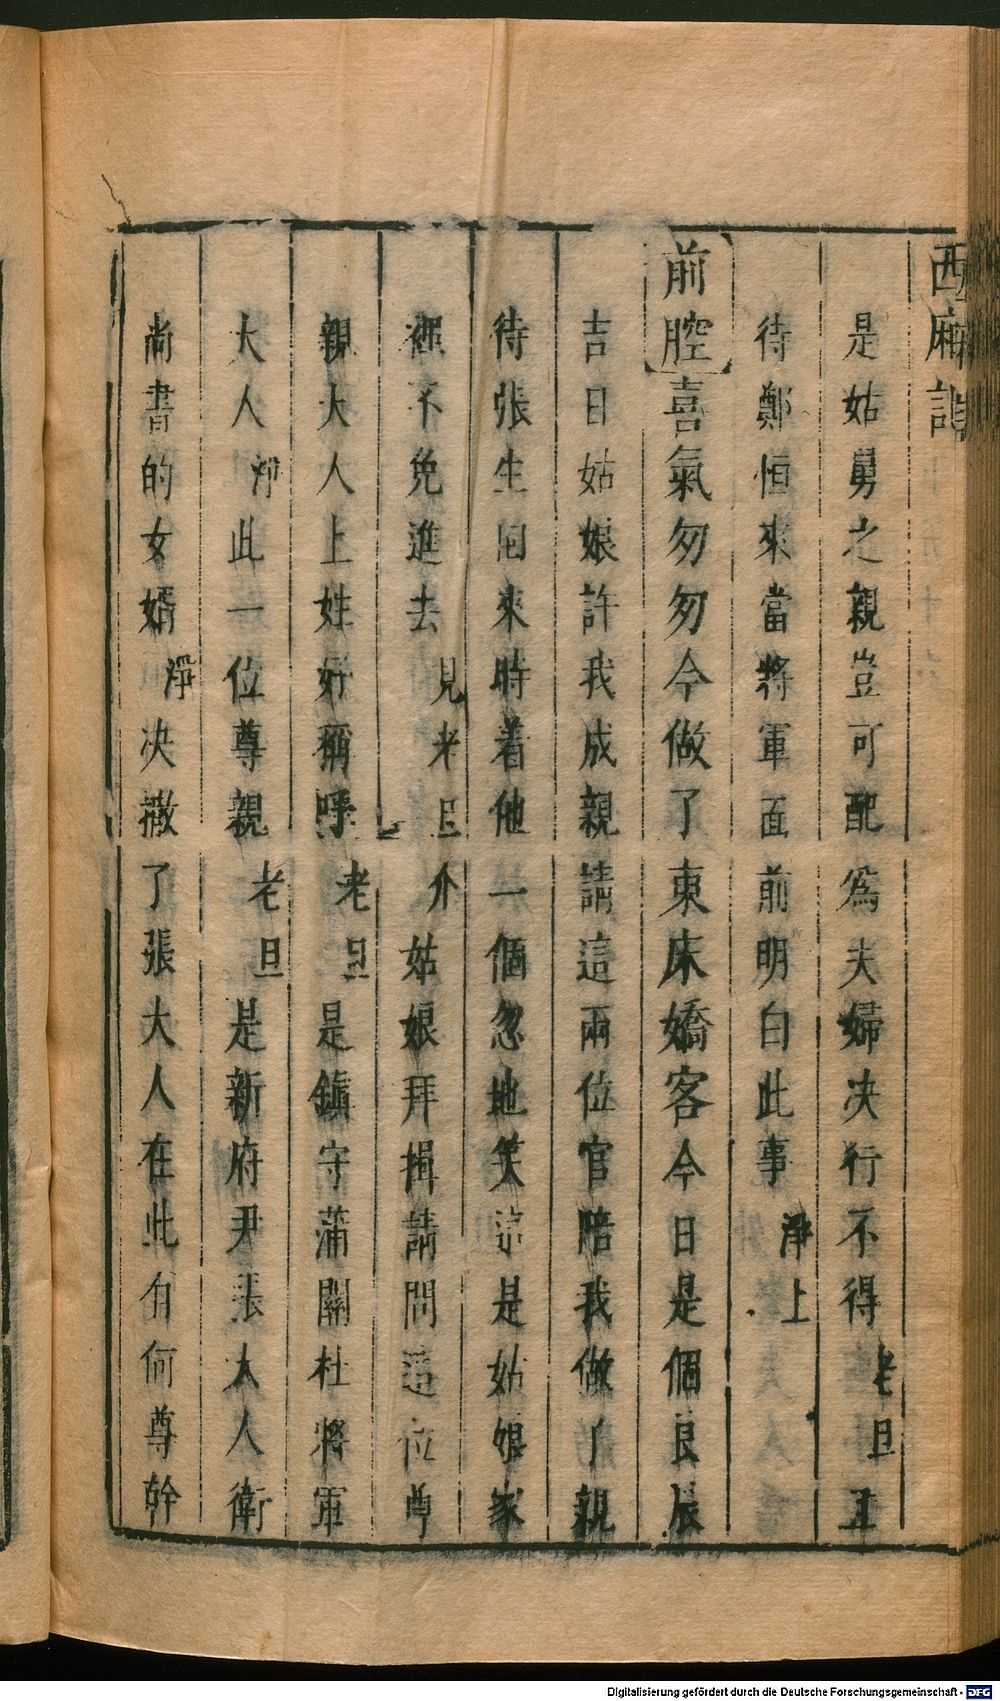 西廂記
是姑舅之親豈可配爲夫婦决行不得老旦正
待鄭恒來當將軍面前明白此事淨上
前腔喜氣匆匆今做了東床嬌客今日是個良辰
吉日姑娘許我成親請這兩位官陪我做了親
待張生回來時着他一個忽地笑這是姑娘家
裡不免進去見老旦介姑娘拜揖請問這位尊
親大人上姓好稱呼老旦是鎭守蒲關杜將軍
大人淨此一位尊親老旦是新府尹張大人衛
尚書的女婿淨决撒了張大人在此有何尊幹
Digitalisierung gefördert durch die Deutsche Forschungsgemeinschaft - DFG